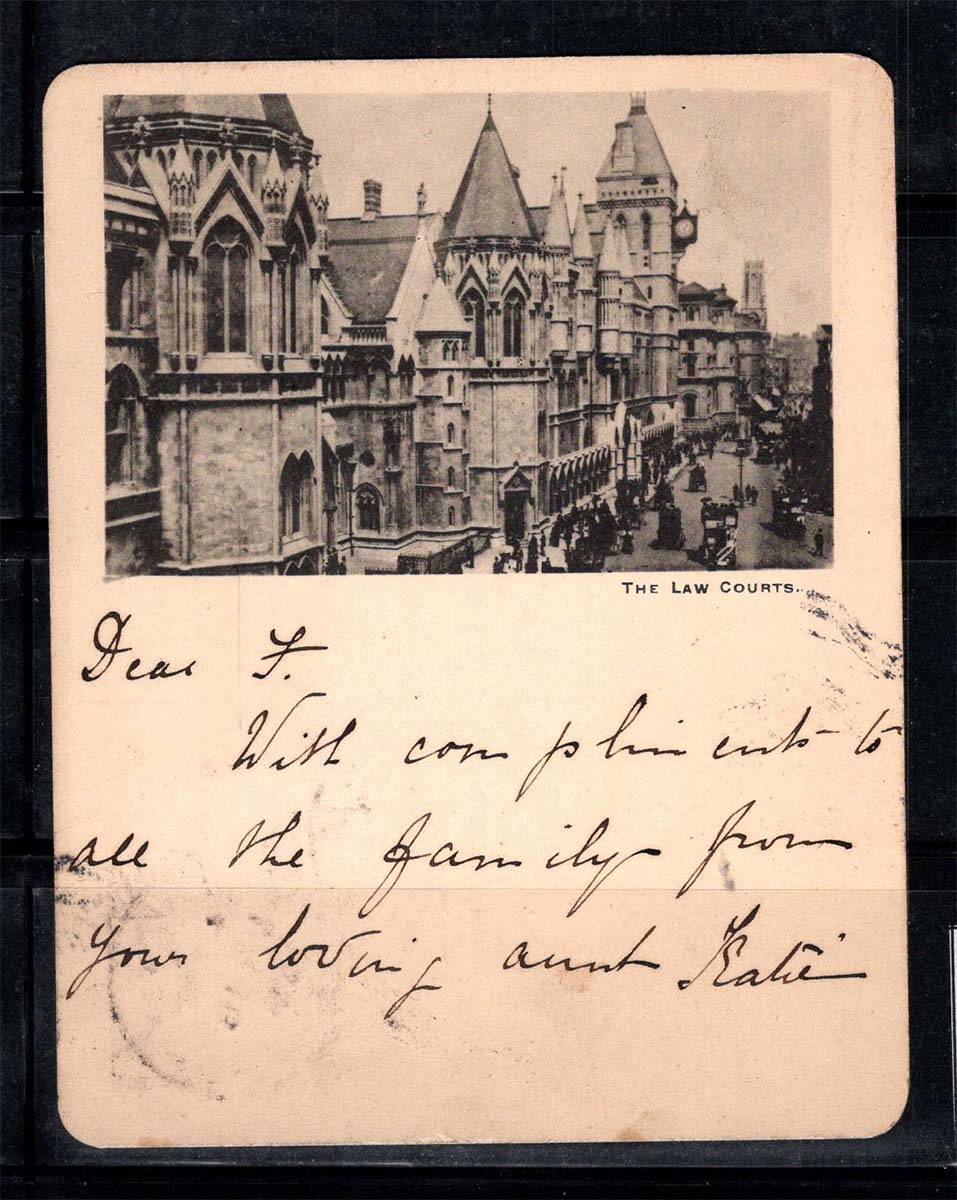 THE LAW COURTS.
Dear F.
With compliments to
all the family from
your loving aunt Katie